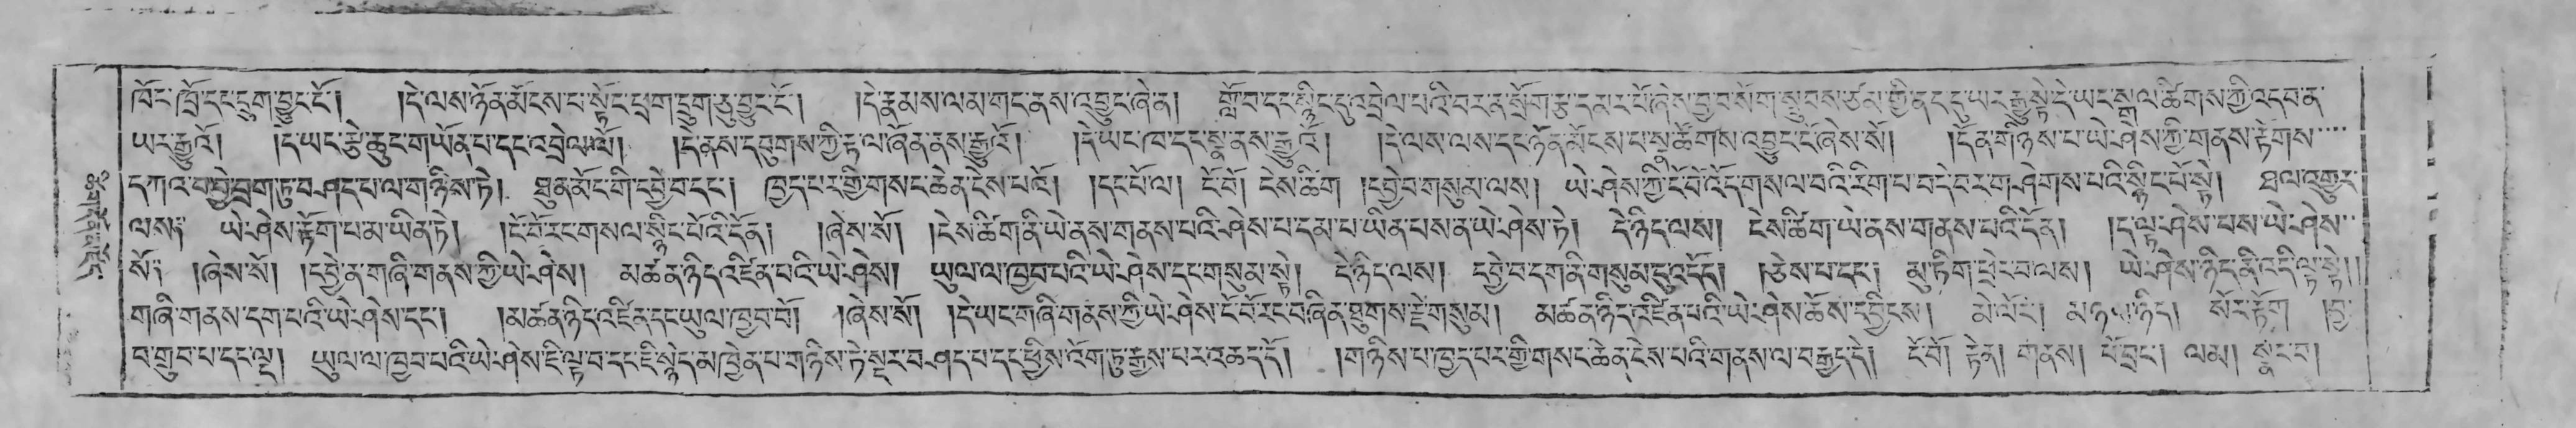 ཁོང་ཁྲོ་དང་དྲུག་བྱུང་ངོ་། །དེ་ལས་ཉོན་མོངས་པ་སྟོང་ཕྲག་དྲུག་ཅུ་བྱུང་ངོ་། །དེ་རྣམས་ལམ་གང་ནས་འབྱུང་ཞེ་ན། གློ་བ་དང་སྙིང་དུ་འབྲེལ་པའི་བར་ན་སྲོག་རྩ་དམར་པོ་ཞེས་བྱ་བ་སོག་སྦུབས་ཙམ་གྱི་ནང་དུ་ཡར་རྒྱུ་སྟེ་དེ་ཡང་སྒལ་ཚིགས་ཀྱི་འདབ་ན་
ཡར་རྒྱུའོ། །དེ་ཡང་རྩེ་ཆུང་གཡོན་པ་དང་འབྲེལ་ལོ། །དེ་ནས་དབུགས་ཀྱི་རྟ་ལ་ཞོན་ནས་རྒྱུའོ། །དེ་ཡང་ཁ་དང་སྣ་ནས་རྒྱུའོ། །དེ་ལས་ལས་དང་ཉོན་མོངས་པ་སྣ་ཚོགས་འབྱུང་ངོ་ཞེས་སོ། །དོན་གཉིས་པ་ཡེ་ཤེས་ཀྱི་གནས་རྟོགས་
དཀའ་བ་བྱེ་བྲག་ཏུ་བཤད་པ་ལ་གཉིས་ཏེ། ཐུན་མོང་གི་དབྱེ་བ་དང་། ཁྱད་པར་གྱི་གསང་ཆེན་ངེས་པའོ། །དང་པོ་ལ། ངོ་བོ། ངེས་ཚིག །དབྱེ་བ་གསུམ་ལས། ཡེ་ཤེས་ཀྱི་ངོ་བོ་འོད་གསལ་བའི་རིག་པ་བདེ་བར་གཤེགས་པའི་སྙིང་པོ་སྟེ། ཐལ་འགྱུར་
ལས། ཡེ་ཤེས་རྟོག་པ་མ་ཡིན་ཏེ། །ངོ་བོ་རང་གསལ་སྙིང་པོའི་དོན། །ཞེས་སོ། །ངེས་ཚིག་ནི་ཡེ་ནས་གནས་པའི་ཤེས་པ་དམ་པ་ཡིན་པས་ན་ཡེ་ཤེས་ཏེ། དེ་ཉིད་ལས། ངེས་ཚིག་ཡེ་ནས་གནས་པའི་དོན། །ད་ལྟ་ཤེས་པས་ཡེ་ཤེས་
སོ། །ཞེས་སོ། །དབྱེ་ན་གཞི་གནས་ཀྱི་ཡེ་ཤེས། མཚན་ཉིད་འཛིན་པའི་ཡེ་ཤེས། ཡུལ་ལ་ཁྱབ་པའི་ཡེ་ཤེས་དང་གསུམ་སྟེ། དེ་ཉིད་ལས། དབྱེ་བ་དག་ནི་གསུམ་དུ་འདོད། །ཅེས་པ་དང་། མུ་ཏིག་ཕྲེང་བ་ལས། ཡེ་ཤེས་ཉིད་ནི་འདི་ལྟ་སྟེ། །
གཞི་གནས་དག་པའི་ཡེ་ཤེས་དང་། །མཚན་ཉིད་འཛིན་དང་ཡུལ་ཁྱབ་བོ། །ཞེས་སོ། །དེ་ཡང་གཞི་གནས་ཀྱི་ཡེ་ཤེས་ངོ་བོ་རང་བཞིན་ཐུགས་རྗེ་གསུམ། མཚན་ཉིད་འཛིན་པའི་ཡེ་ཤེས་ཆོས་དབྱིངས། མེ་ལོང་། མཉམ་ཉིད། སོར་རྟོག །བྱ་
བ་གྲུབ་པ་དང་ལྔ། ཡུལ་ལ་ཁྱབ་པའི་ཡེ་ཤེས་ཇི་ལྟ་བ་དང་ཇི་སྙེད་མཁྱེན་པ་གཉིས་ཏེ་སྔར་བཤད་པ་དང་ཕྱིས་འོག་ཏུ་རྒྱས་པར་འཆད་དོ། །གཉིས་པ་ཁྱད་པར་གྱི་གསང་ཆེན་ངེས་པའི་གནས་ལ་བརྒྱད་དེ། ངོ་བོ། རྟེན། གནས། ཕོ་བྲང་། ལམ། སྣང་བ།